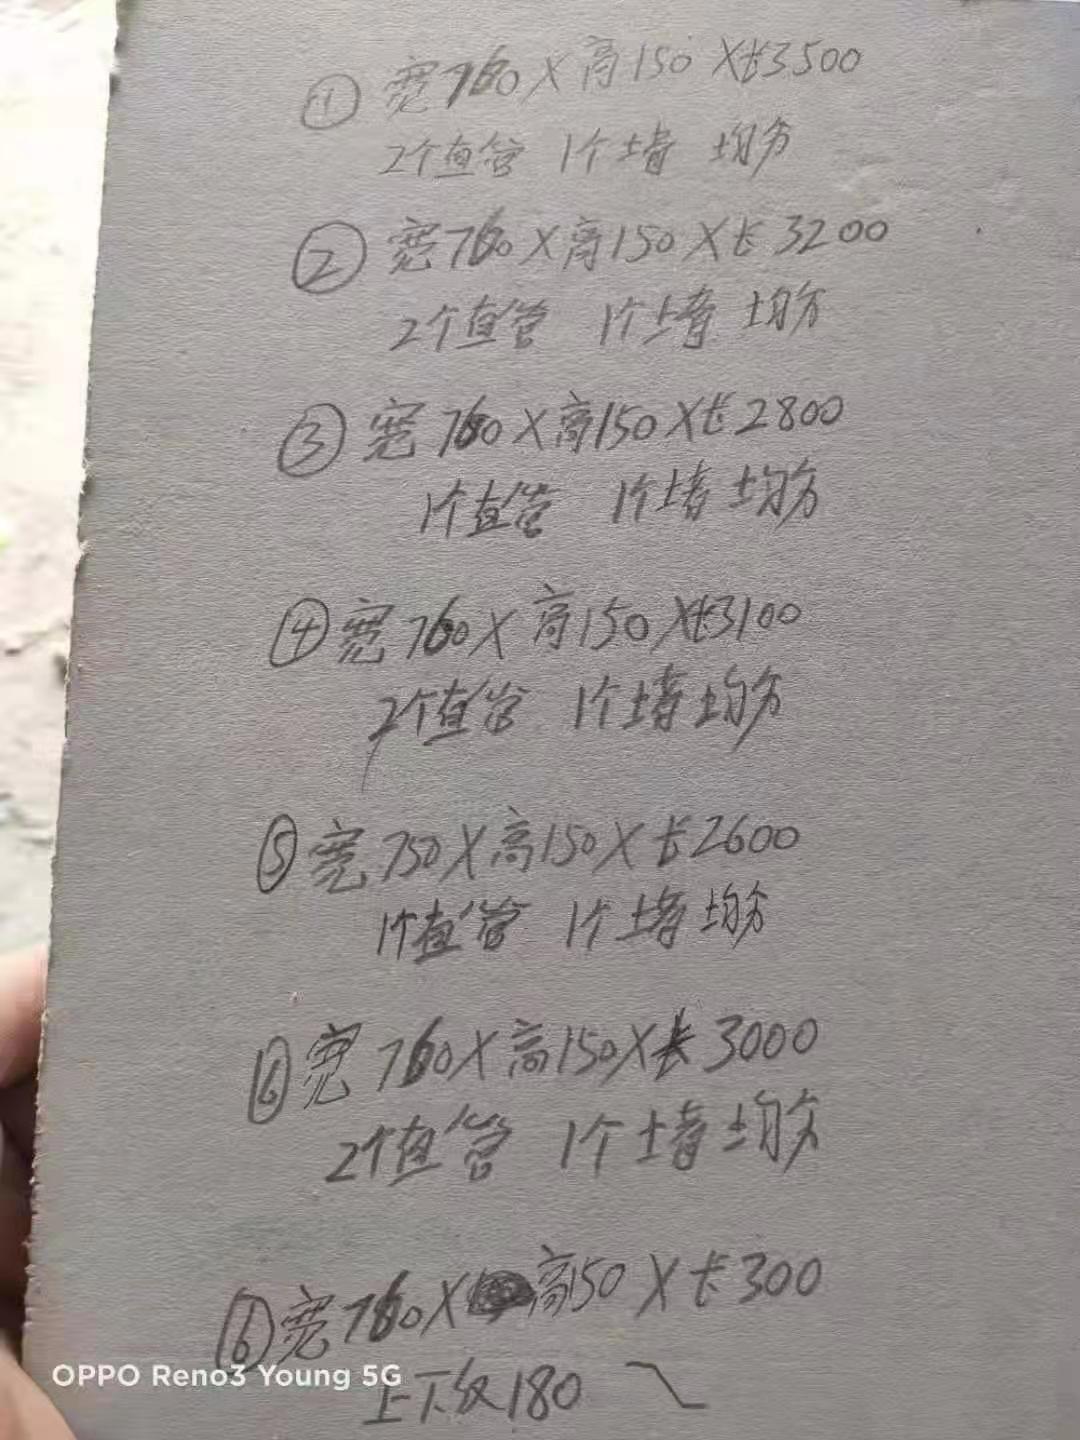 ① 宽760X高150X长3500
2个直管 1个堵 均分
② 宽760X高150X长3200
2个直管 1个堵 均分
③ 宽760X高150X长2800
1个直管 1个堵 均分
④ 宽760X高150X长3100
2个直管 1个堵 均分
⑤ 宽750X高150X长2600
1个直管 1个堵 均分
⑥ 宽760X高150X长3000
2个直管 1个堵 均分
⑥ 宽760X高150X长300
OPPO Reno3 Young 5G
上下 180